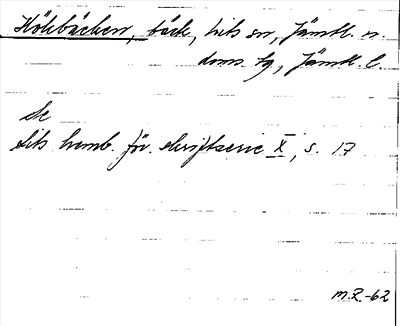 Kölsbäcken, bäck, Lits sn, Jämtl. n.
doms. hg, Jämtl. l.
Se
Lits hemb. för. skriftserie X, s. 17
M.R.-62